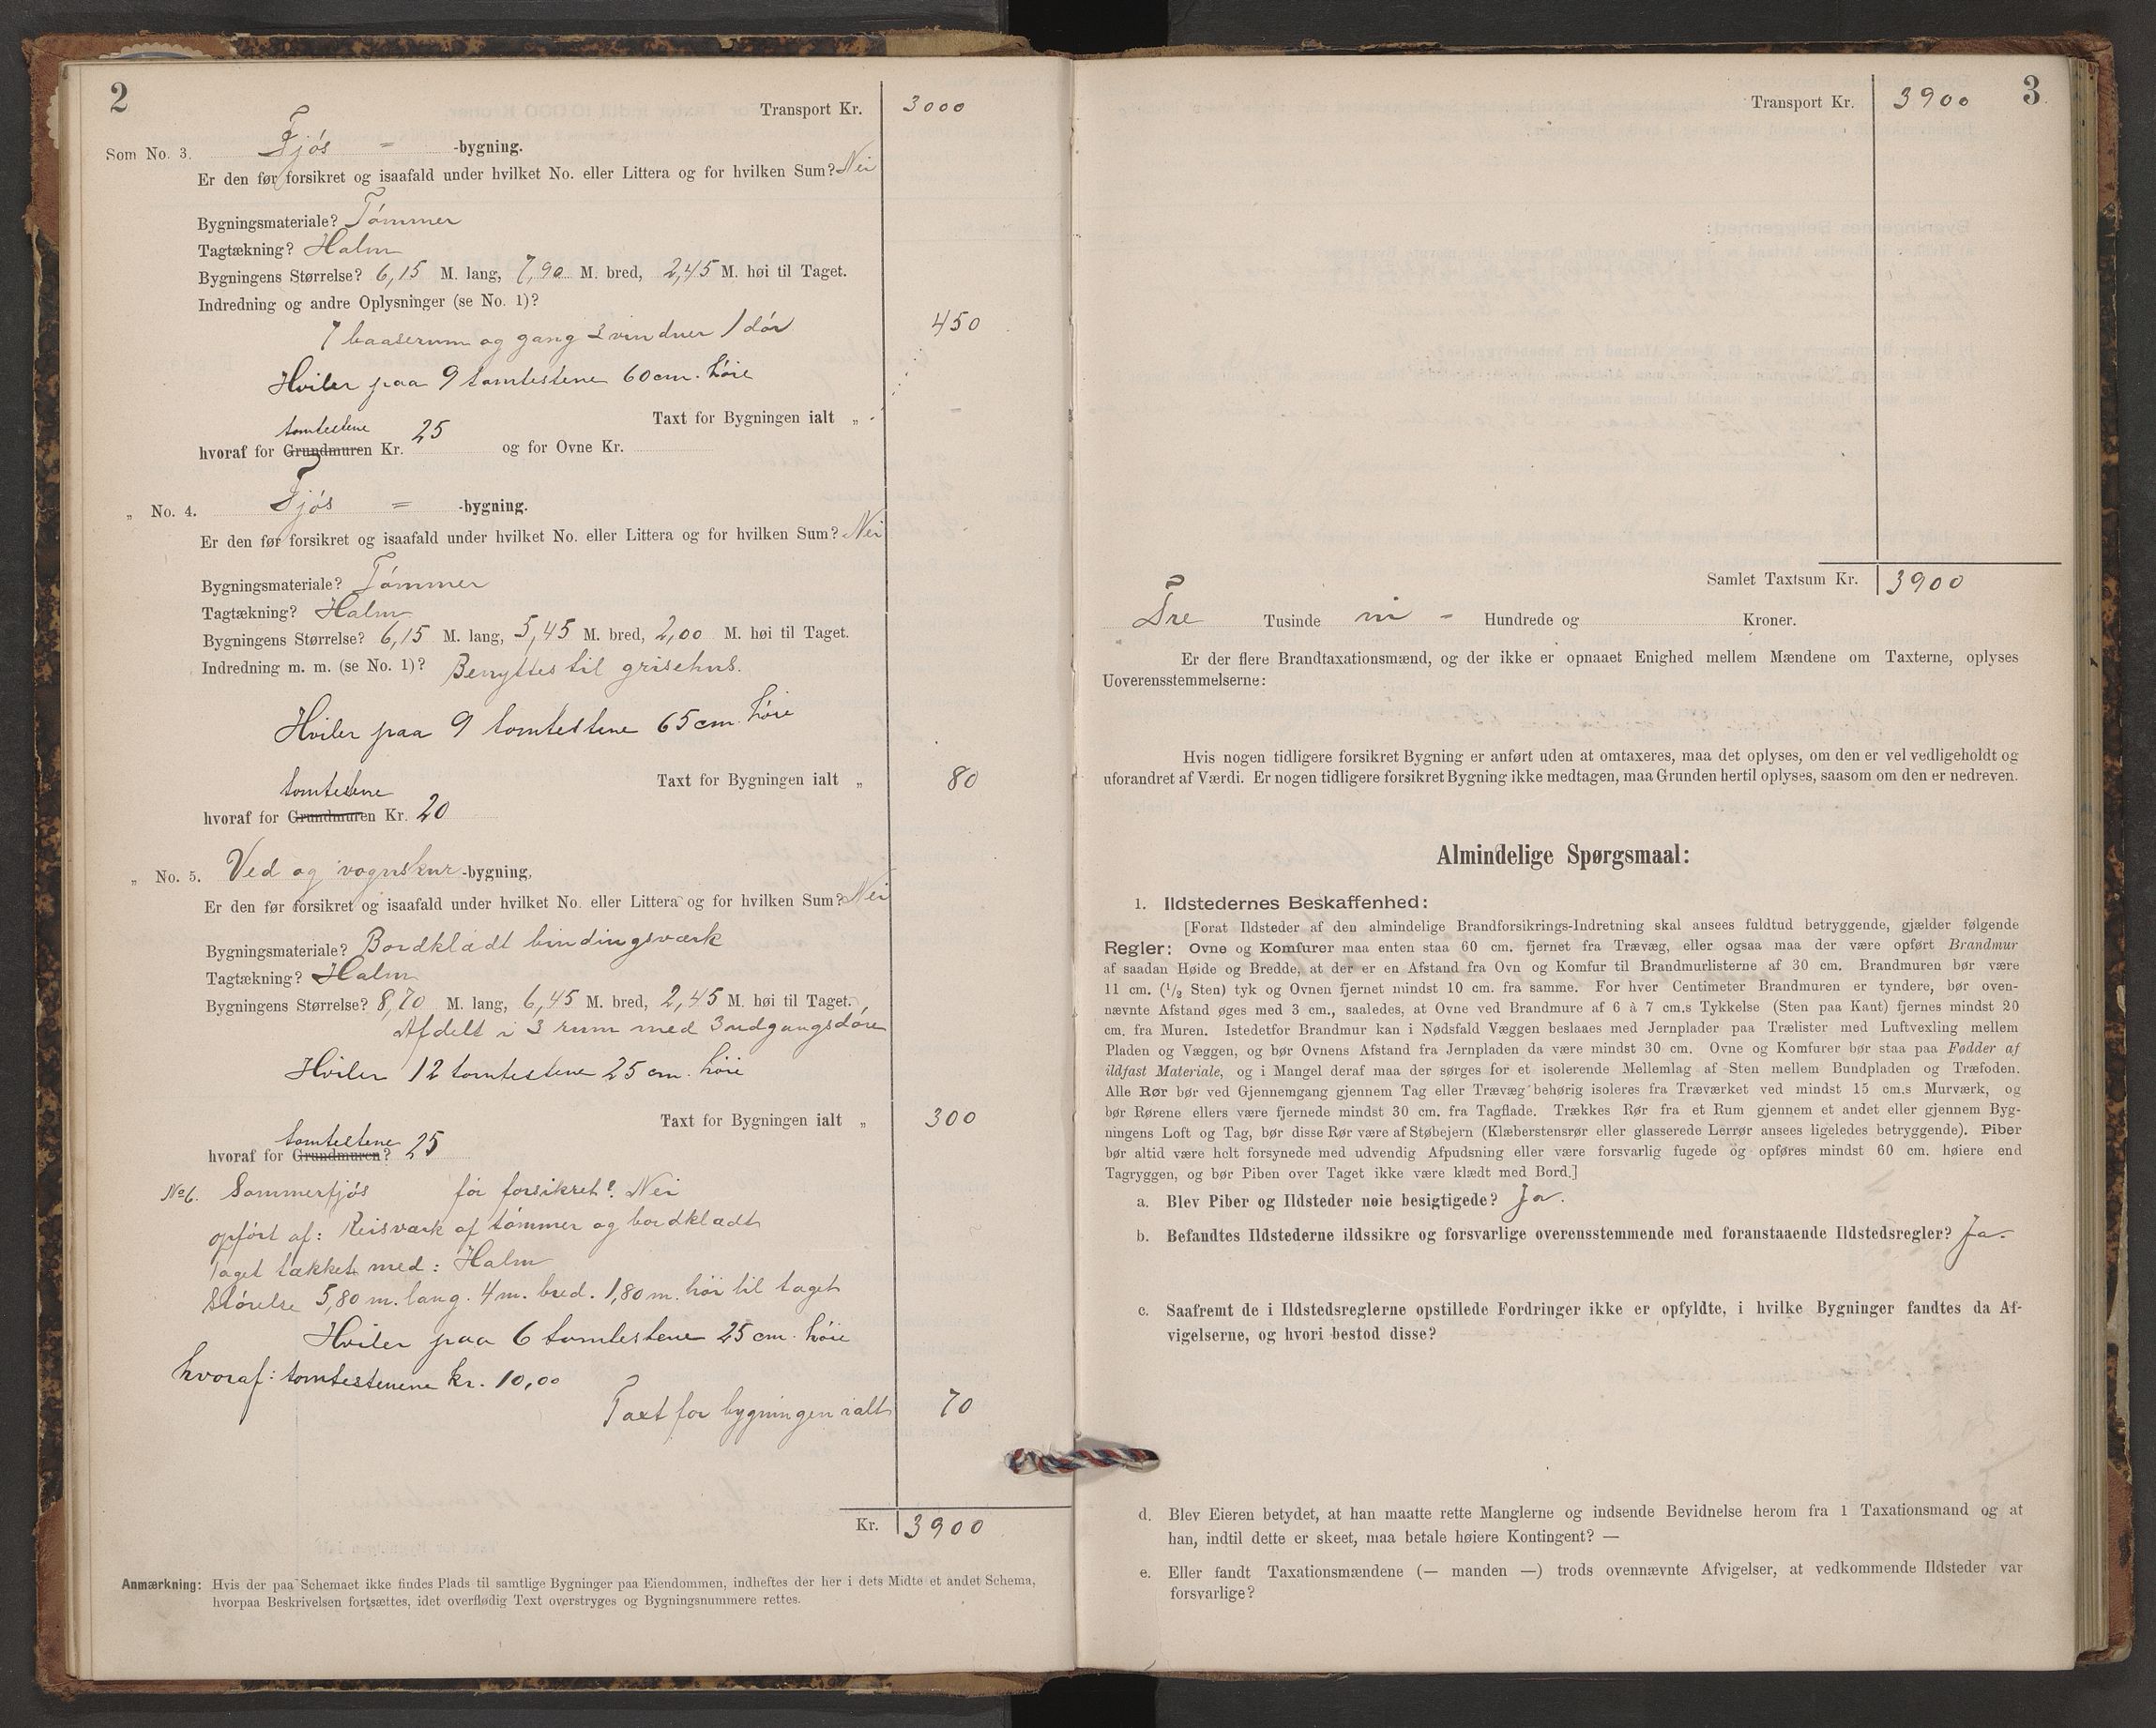 2
Transport Kr. 3000
Som No. 3. Fjós = -bygning.
Er den før forsikret og isaafald under hvilket No. eller Littera og for hvilken Sum? Nei
Bygningsmateriale? Tómmer
Tagtækning? Halm
Bygningens Størrelse? 6,15 M. lang, 7,90 M. bred, 2,45 M. høi til Taget.
Indredning og andre Oplysninger (se No. 1)?
7 baaserum og gang 2 vinduer 1 dór 450
Hviler paa 9 tomtestene 60 cm. hóie
Taxt for Bygningen ialt „
tomtestene
hvoraf for Grundmuren Kr. 25 og for Ovne Kr.
„ No. 4. Fjós = -bygning.
Er den før forsikret og isaafald under hvilket No. eller Littera og for hvilken Sum? Nei
Bygningsmateriale? Tómmer
Tagtækning? Halm
Bygningens Størrelse? 6,15 M. lang, 5,45 M. bred, 2,00 M. høi til Taget.
Indredning m. m. (se No. 1)? Benyttes til grisehus.
Hviler paa 9 tomtestene 65 cm. hóie
Taxt for Bygningen ialt „ 80
tomtestene
hvoraf for Grundmuren Kr. 20
„ No. 5. Ved og vognskur -bygning,
Er den før forsikret og isaafald under hvilket No. eller Littera og for hvilken Sum? Nei
Bygningsmateriale? Bordklædt bindingsværk
Tagtækning? Halm
Bygningens Størrelse? 8,70 M. lang, 6,45 M. bred, 2,45 M. høi til Taget.
Afdelt i 3 rum med 3 udgangsdóre
Hviler 12 tomtestene 25 cm. hóie
Taxt for Bygningen ialt „ 300
tomtestene
hvoraf for Grundmuren? 25
No 6. Sommerfjós fór forsikret? Nei
opfórt af: Reisværk af tómmer og bordklædt
Taget tækket med: Halm
Stórelse 5,80 m. lang. 4 m. bred. 1,80 m. hói til taget
Hviler paa 6 tomtestene 25 cm. hóie
hvoraf: tomtestenene kr. 10,00
Taxt for bygningen ialt 70
Kr. 3900
Anmærkning: Hvis der paa Schemaet ikke findes Plads til samtlige Bygninger paa Eiendommen, indheftes der her i dets Midte et andet Schema,
hvorpaa Beskrivelsen fortsættes, idet overflødig Text overstryges og Bygningsnummere rettes.
3
Transport Kr. 3900
Samlet Taxtsum Kr. 3900
Tre Tusinde ni = Hundrede og Kroner.
Er der flere Brandtaxationsmænd, og der ikke er opnaaet Enighed mellem Mændene om Taxterne, oplyses
Uoverensstemmelserne:
Hvis nogen tidligere forsikret Bygning er anført uden at omtaxeres, maa det oplyses, om den er vel vedligeholdt og
uforandret af Værdi. Er nogen tidligere forsikret Bygning ikke medtagen, maa Grunden hertil oplyses, saasom om den er nedreven.
Almindelige Spørgsmaal:
1. Ildstedernes Beskaffenhed:
[Forat Ildsteder af den almindelige Brandforsikrings-Indretning skal ansees fuldtud betryggende, gjælder følgende
Regler: Ovne og Komfurer maa enten staa 60 cm. fjernet fra Trævæg, eller ogsaa maa der være opført Brandmur
af saadan Høide og Bredde, at der er en Afstand fra Ovn og Komfur til Brandmurlisterne af 30 cm. Brandmuren bør være
11 cm. (1/2 Sten) tyk og Ovnen fjernet mindst 10 cm. fra samme. For hver Centimeter Brandmuren er tyndere, bør oven-
nævnte Afstand øges med 3 cm., saaledes, at Ovne ved Brandmure af 6 à 7 cm.s Tykkelse (Sten paa Kant) fjernes mindst 20
cm. fra Muren. Istedetfor Brandmur kan i Nødsfald Væggen beslaaes med Jernplader paa Trælister med Luftvexling mellem
Pladen og Væggen, og bør Ovnens Afstand fra Jernpladen da være mindst 30 cm. Ovne og Komfurer bør staa paa Fødder af
ildfast Materiale, og i Mangel deraf maa der sørges for et isolerende Mellemlag af Sten mellem Bundpladen og Træfoden.
Alle Rør bør ved Gjennemgang gjennem Tag eller Trævæg behørig isoleres fra Træværket ved mindst 15 cm.s Murværk, og
bør Rørene ellers være fjernede mindst 30 cm. fra Tagflade. Trækkes Rør fra et Rum gjennem et andet eller gjennem Byg-
ningens Loft og Tag, bør disse Rør være af Støbejern (Klæberstensrør eller glasserede Lerrør ansees ligeledes betryggende). Piber
bør altid være helt forsynede med udvendig Afpudsning eller være forsvarlig fugede og opføres mindst 60 cm. høiere end
Tagryggen, og bør Piben over Taget ikke være klædt med Bord.]
a. Blev Piber og Ildsteder nøie besigtigede? Ja.
b. Befandtes Ildstederne ildssikre og forsvarlige overensstemmende med foranstaaende Ildstedsregler? Ja.
c. Saafremt de i Ildstedsreglerne opstillede Fordringer ikke er opfyldte, i hvilke Bygninger fandtes da Af-
vigelserne, og hvori bestod disse?
d. Blev Eieren betydet, at han maatte rette Manglerne og indsende Bevidnelse herom fra 1 Taxationsmand og at
han, indtil dette er skeet, maa betale høiere Kontingent? —
e. Eller fandt Taxationsmændene (— manden —) trods ovennævnte Afvigelser, at vedkommende Ildsteder var
forsvarlige?